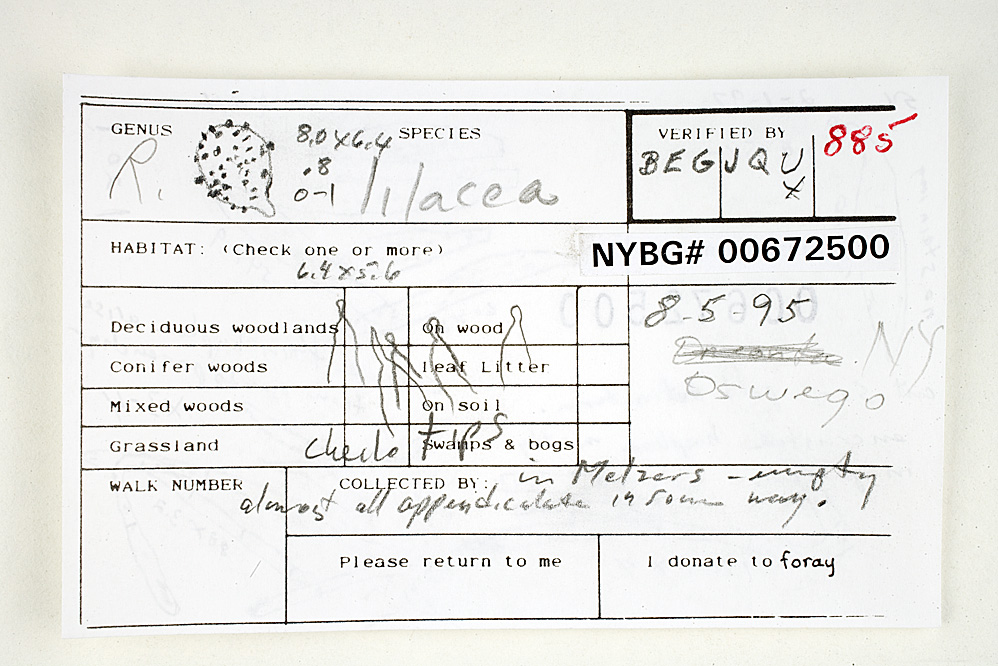 GENUS 8,0 x 6,4 SPECIES VERIFIED BY 885
R. .8 lilacea BEG JQ U
0-1 X
HABITAT: (Check one or more) NYBG# 00672500
6,4 x 5,6
8-5-95
Deciduous woodlands On wood
NY
Conifer woods Leaf Litter
Oswego
Mixed woods On soil
Grassland Cheilo tips Swamps & bogs
WALK NUMBER COLLECTED BY: in Melzers - empty
almost all appendiculate in some way.
Please return to me I donate to foray